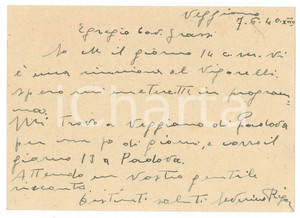 Veggiano
7.6.40 XVIII
Egregio Cav. Grassi
So che il giorno 14 c.m. vi
è una riunione al Vigorelli.
spero mi metterete in program
ma.
Mi trovo a Veggiano di Padova
per un po di giorni, e corro il
giorno 13 a Padova.
Attendo un Vostro gentile
riscontro
Distinti saluti Severino Rigoni